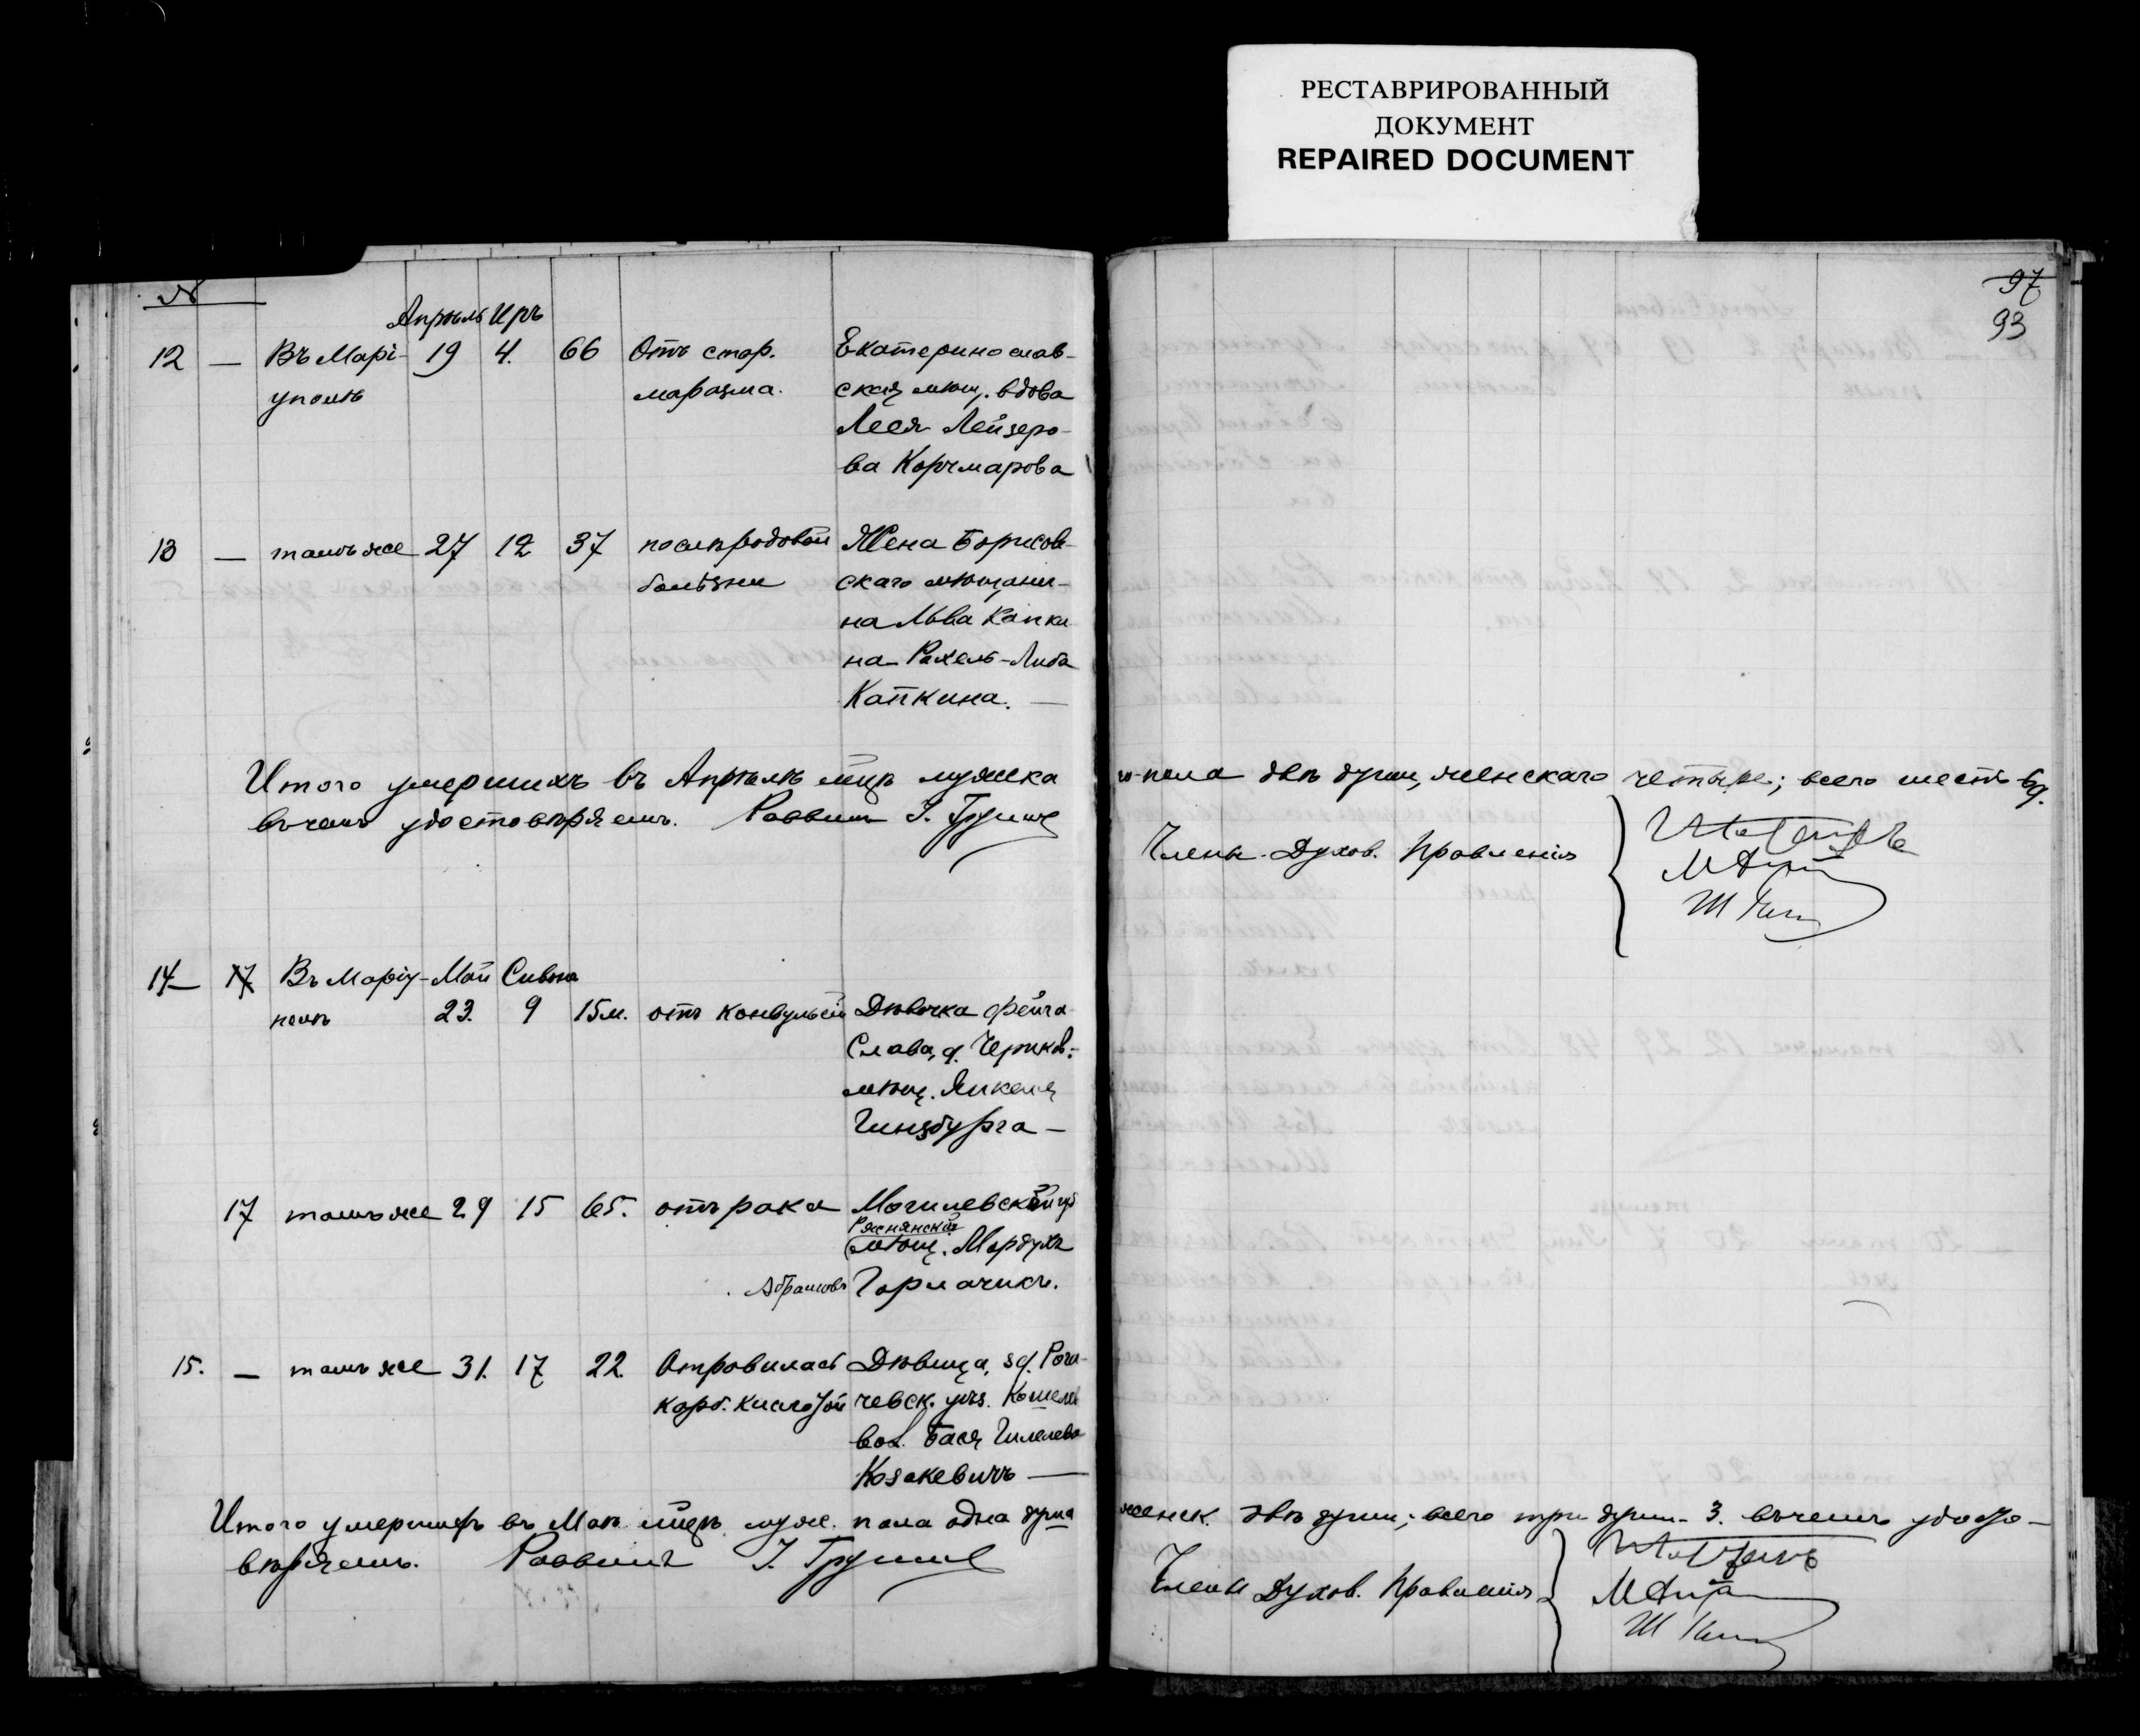 РЕСТАВРИРОВАННЫЙ
ДОКУМЕНТ
REPAIRED DOCUMENT
97
93
№
Апрѣль Иръ
12 — Въ Марі- 19 4. 66 Отъ стар. Екатеринослав-
уполѣ маразма. ская мѣщ. вдова
Лея Лейзеро-
ва Корчмарова
13 — тамъ же 27 12 37 послѣродовой Жена Борисов-
болѣзни скаго мѣщани-
на Льва Капки
на Рахель-Либа
Капкина. —
Итого умершихъ въ Апрѣлѣ мцѣ мужска
го пола двѣ души, женскаго четыре; всего шесть-6 д.
въ чемъ удостовѣряемъ. Раввинъ
Члены Духов. Правленія
14 — 17 Въ Маріу- Май Сивонъ
полѣ 23. 9 15 м. отъ конвульсій Дѣвочка Фейга
Слава, д. Чериков-
мѣщ. Янкеля
Гинзбурга —
17 тамъ же 29 15 65. отъ рака Могилевской губ
Ряснянскій
мѣщ. Мордухъ
Абрамовъ Горлачикъ.
15. — тамъ же 31. 17 22. Отравилась Дѣвица, зд. Рога-
карб. кислотой чевск. уѣз. Кошелев
вол. Бася Гилелева
Козакевичъ —
Итого умершихъ въ Маѣ мцѣ муж. пола одна душа
женск. двѣ души; всего три души- 3. въ чемъ удосто-
вѣряемъ. Раввинъ
Члены Духов. Правленія